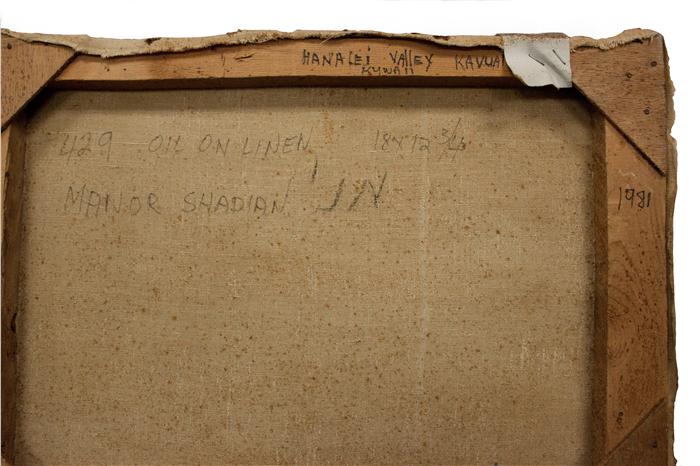 HANALEI VALLEY KAVUA
429 OIL ON LINEN 18X12 3/4
MANOR SHADIAN JN
1981